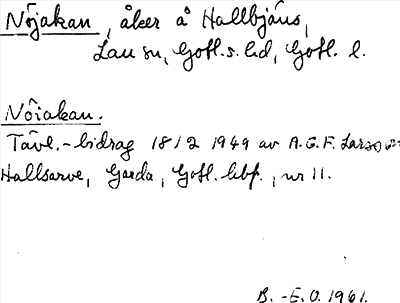 Nôjakan, åker å Hallbjäns,
Lau sn, Gotl. s. hd, Gotl. l.
Nôiakan.
Tävl.-bidrag 18/2 1949 av A.G.F. Larsson
Hallsarve, Garda, Gotl. hbf., nr 11.
B.-E.O. 1961.